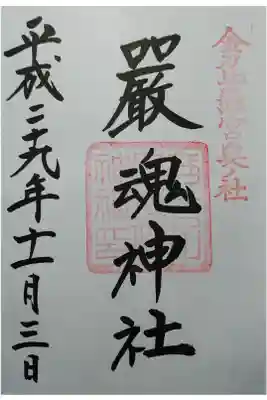 金刀比羅宮奥ノ社
嚴魂神社
平成二十九年十一月三日